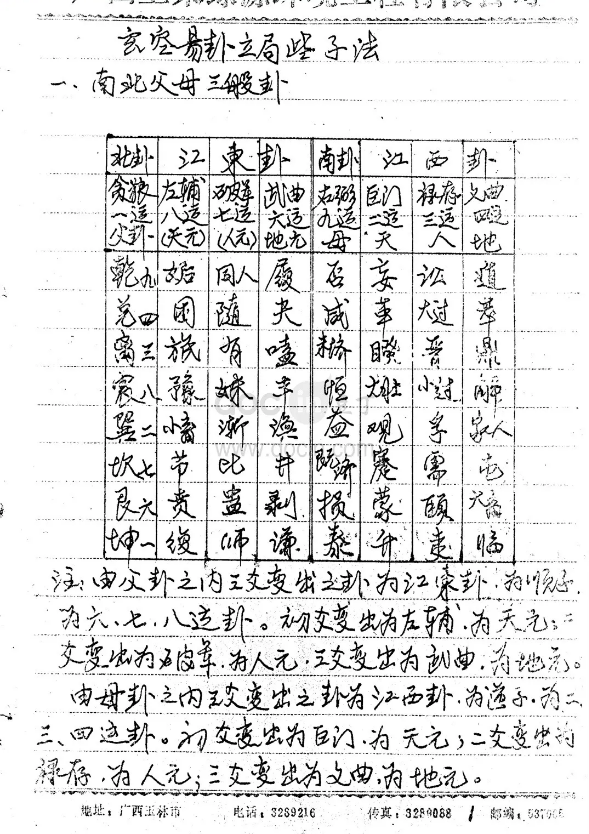 玄空易卦立局些子法
一、南北父母三般卦
北卦 江 東 卦 南卦 江 西 卦
贪狼 左辅 破军 武曲 右弼 巨门 禄存 文曲
一运 八运 七运 六运 九运 二运 三运 四运
父卦 (天元) (人元) 地元 母 天 人 地
乾九 姤 同人 履 否 妄 讼 遁
兑四 困 随 夬 咸 革 大过 萃
离三 旅 有 嗑 未济 睽 晋 鼎
震八 豫 妹 丰 恒 大壮 小过 解
巽二 小畜 渐 涣 益 观 孚 家人
坎七 节 比 井 既济 蹇 需 屯
艮六 贲 蛊 剥 损 蒙 颐 大畜
坤一 復 师 谦 泰 升 夷 临
注：由父卦之内三爻变出之卦为江东卦，为顺子，
为六、七、八运卦。初爻变出为左辅，为天元；二
爻变出为破军，为人元，三爻变出为武曲，为地元。
由母卦之内三爻变出之卦为江西卦，为逆子，为二、
三、四运卦。初爻变出为巨门，为天元；二爻变出为
禄存，为人元；三爻变出为文曲，为地元。
地址：广西玉林市 电话：3289216 传真：3289088 1 邮编：